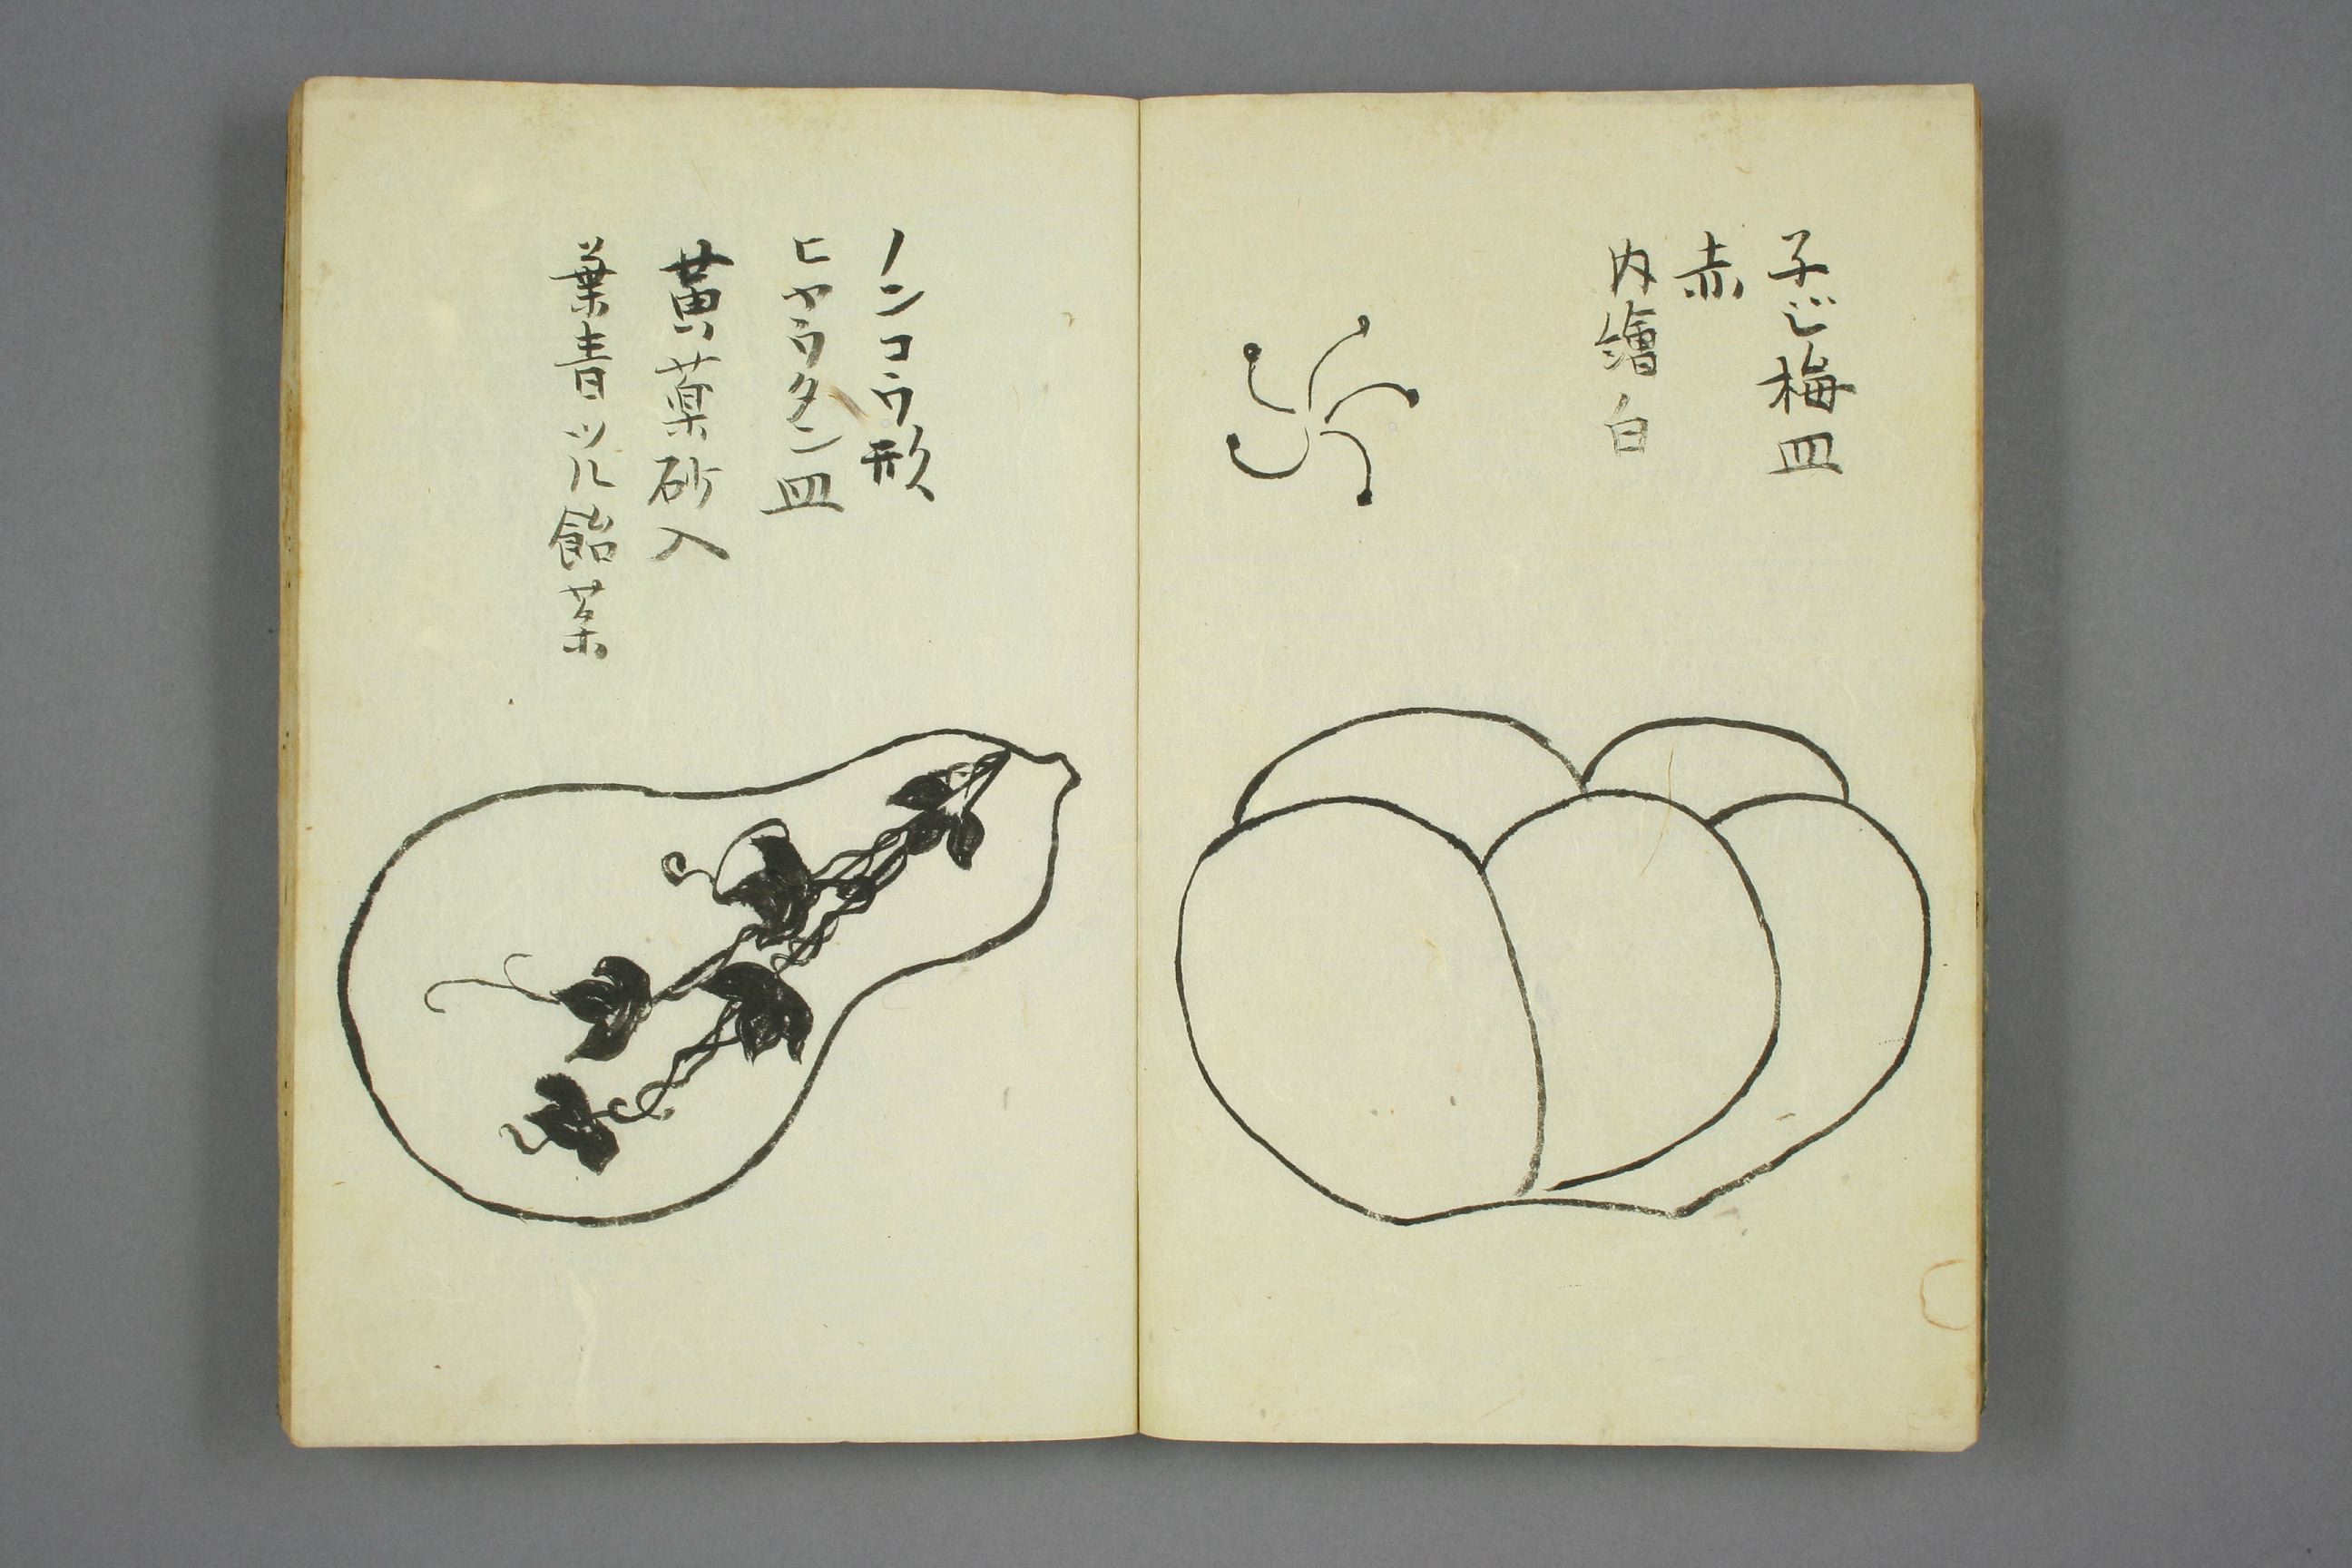 子ジ梅皿
赤
内繪白
ノンコウ形
ヒヤウタン皿
黄薬砂入
葉青ツル飴薬